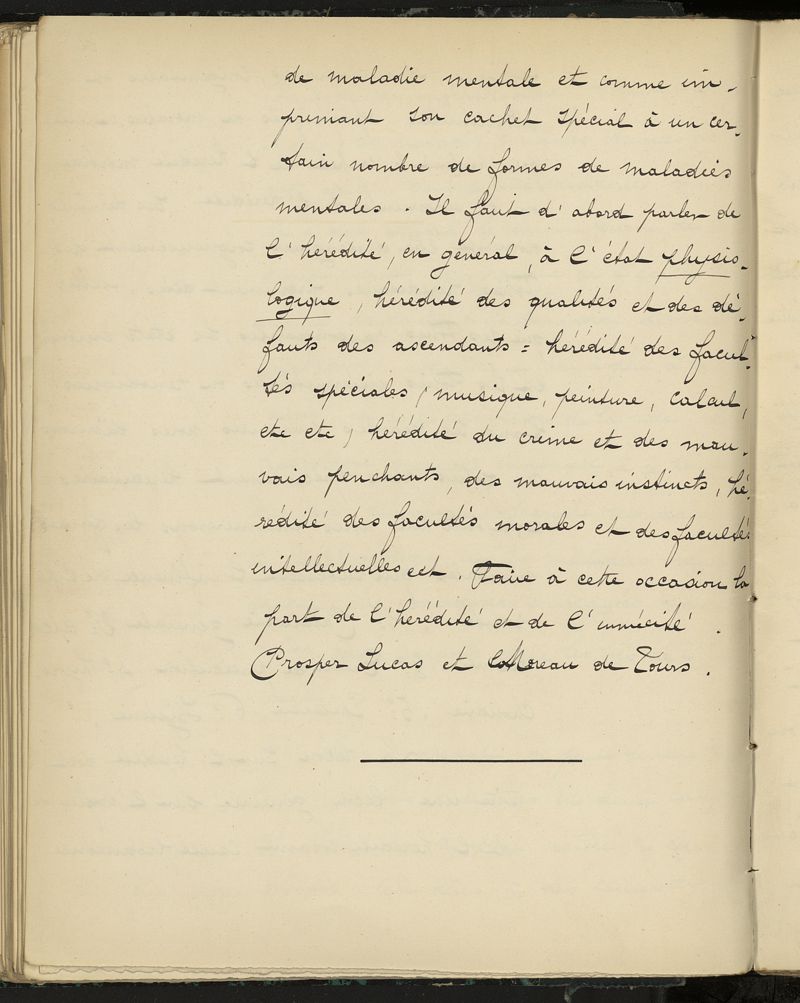 de maladie mentale et comme im-
primant son cachet spécial à un cer-
tain nombre de formes de maladies
mentales. Il faut d'abord parler de
l'hérédité, en général, à l'état physio-
logique, hérédité des qualités et des dé-
fauts des ascendants = hérédité des facul-
tés spéciales (musique, peinture, calcul,
etc etc) hérédité du crime et des mau-
vais penchants, des mauvais instincts, hé-
rédité des facultés morales et des facultés
intellectuelles ect. Faire à cette occasion la
part de l'hérédité et de l'innéité.
Prosper Lucas et Moreau de Tours.